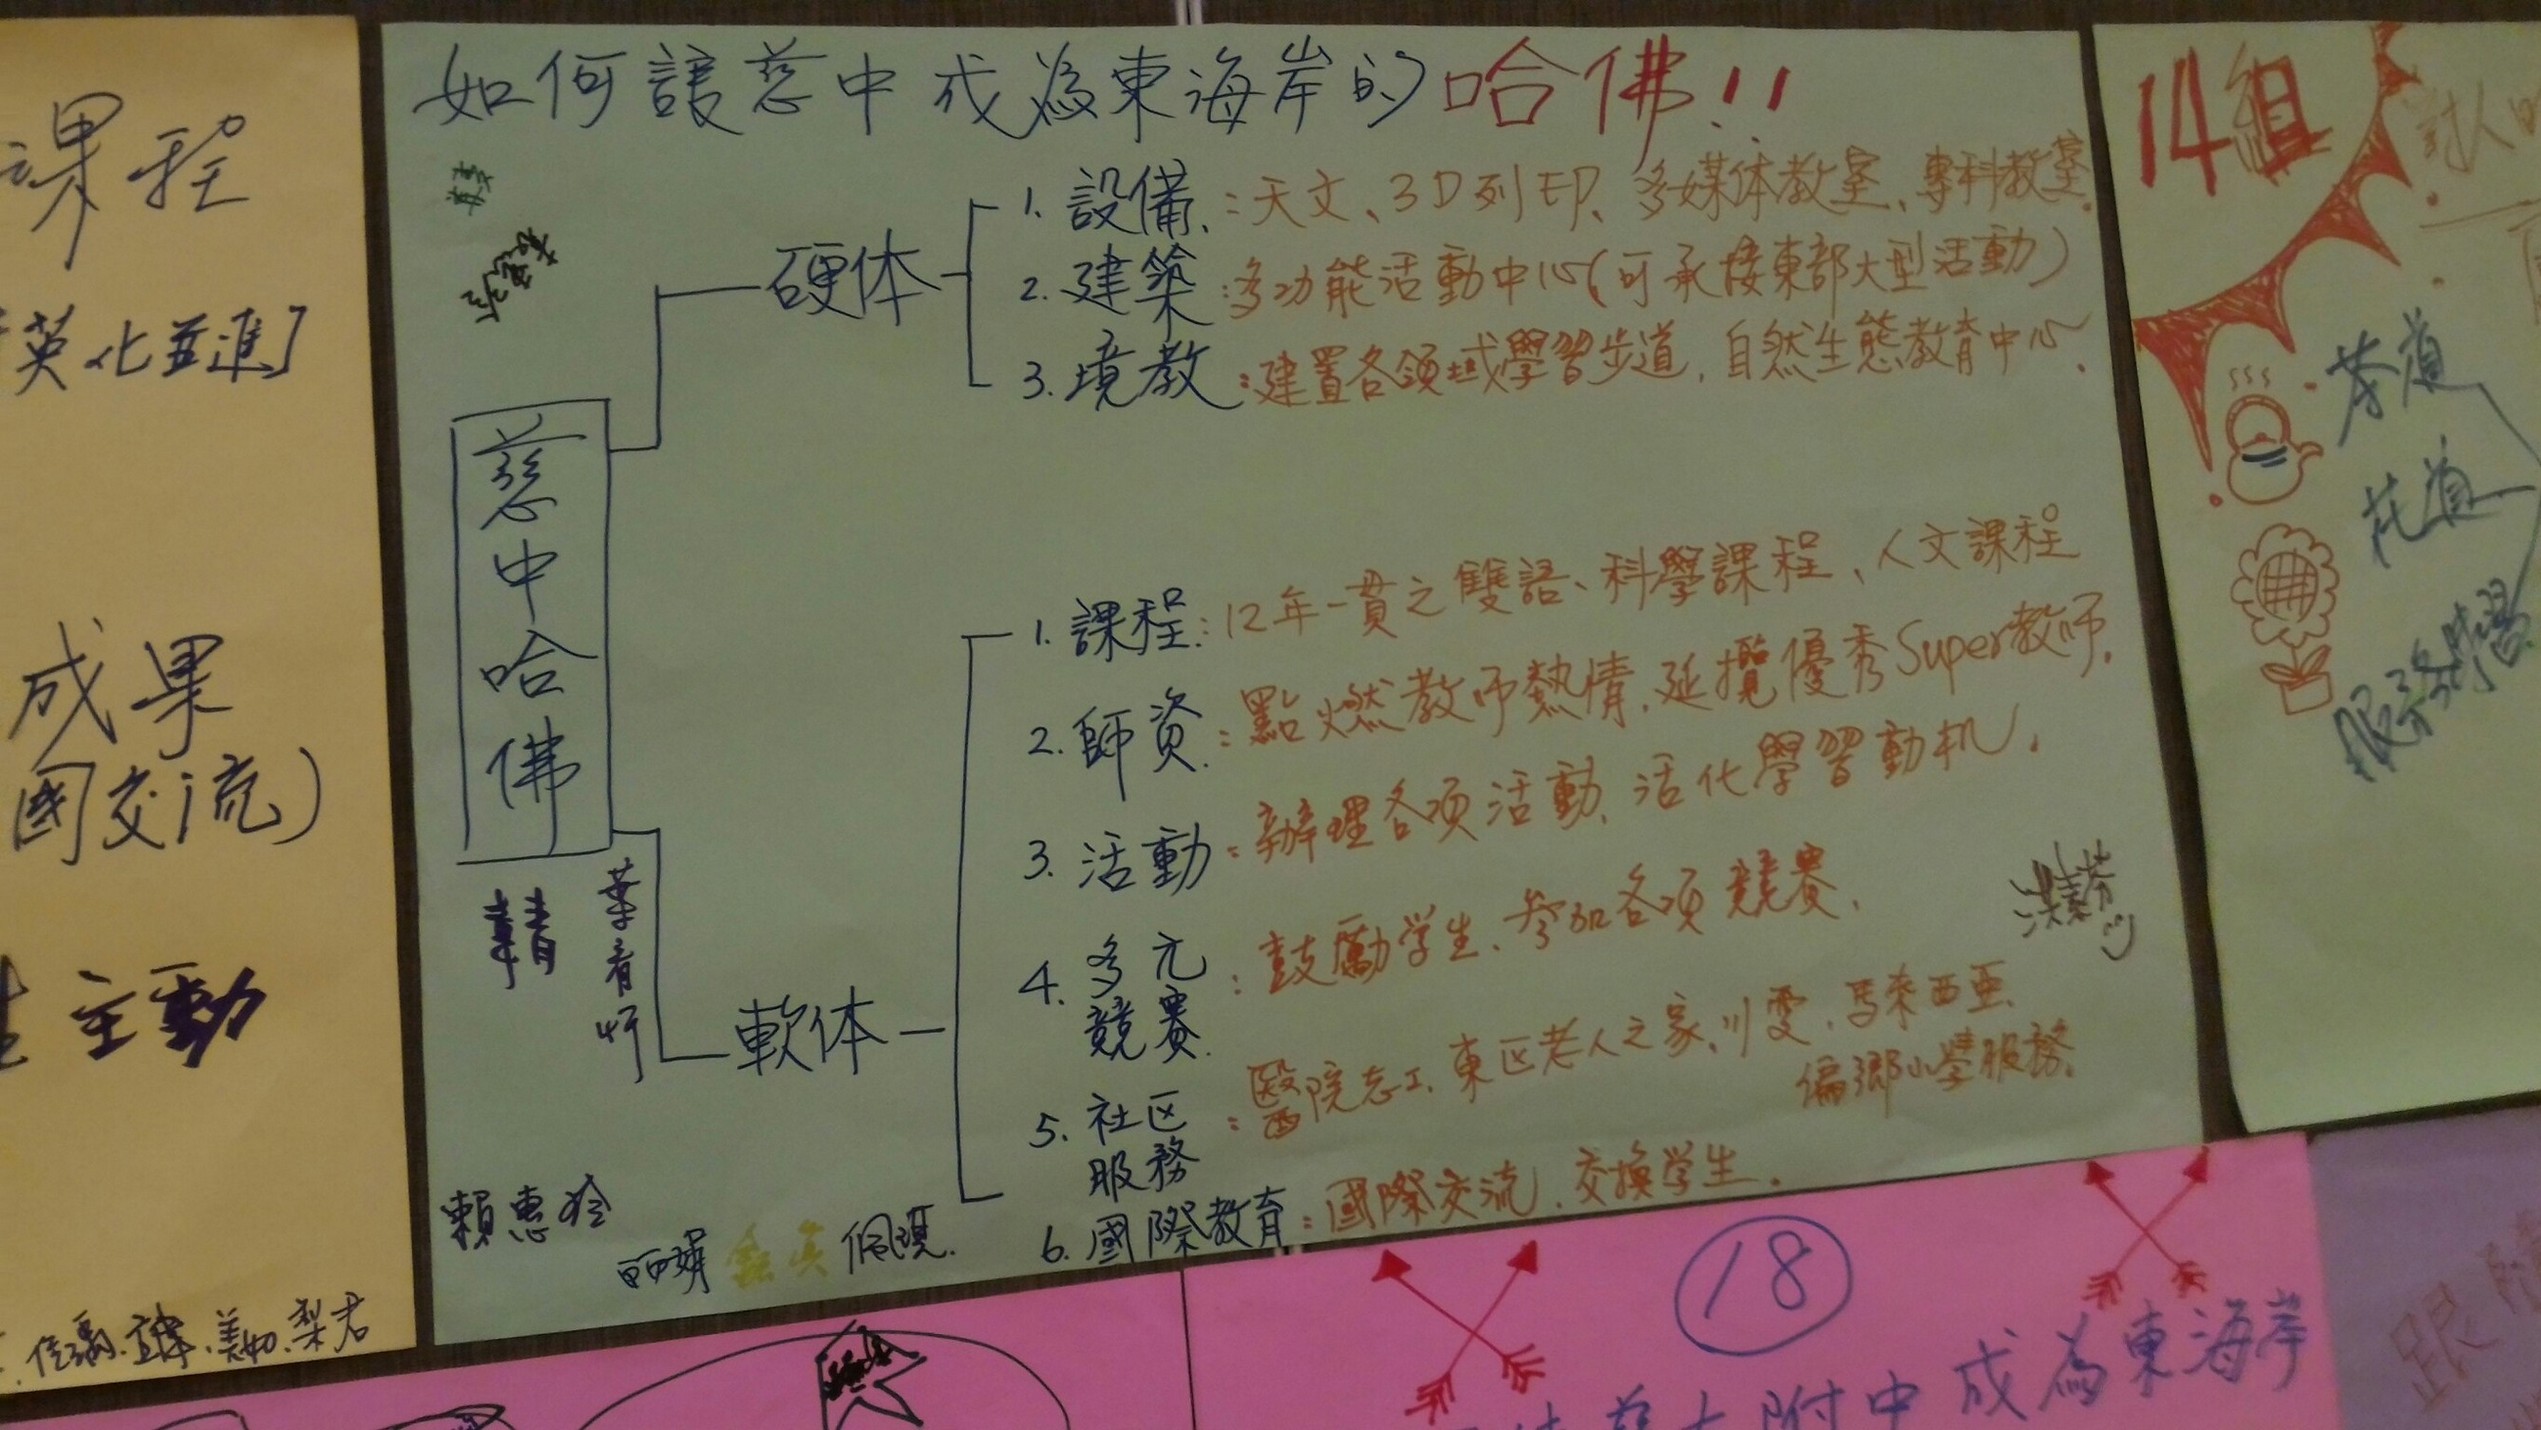 如何讓慈中成為東海岸的哈佛!!
慈中哈佛
硬体
1. 設備：天文、3D列印、多媒体教室、專科教室.
2. 建築：多功能活動中心(可承接東部大型活動)
3. 境教：建置各領域學習步道，自然生態教育中心.
軟体
1. 課程：12年一貫之雙語、科學課程、人文課程
2. 師資：點燃教師熱情，延攬優秀Super教師.
3. 活動：辦理各項活動、活化學習動机.
4. 多元競賽：鼓勵学生、參加各項競賽.
5. 社区服務：醫院志工、東区老人之家、川雯、馬來西亞、
偏鄉小學服務.
6. 國際教育：國際交流、交換学生.
葉育妡
賴惠玲
佩琪.
課程
英化並進]
成果
國交流)
主動
美如.梨君
14組
茶道
花道
服務學習
18
慈大附中成為東海岸
跟